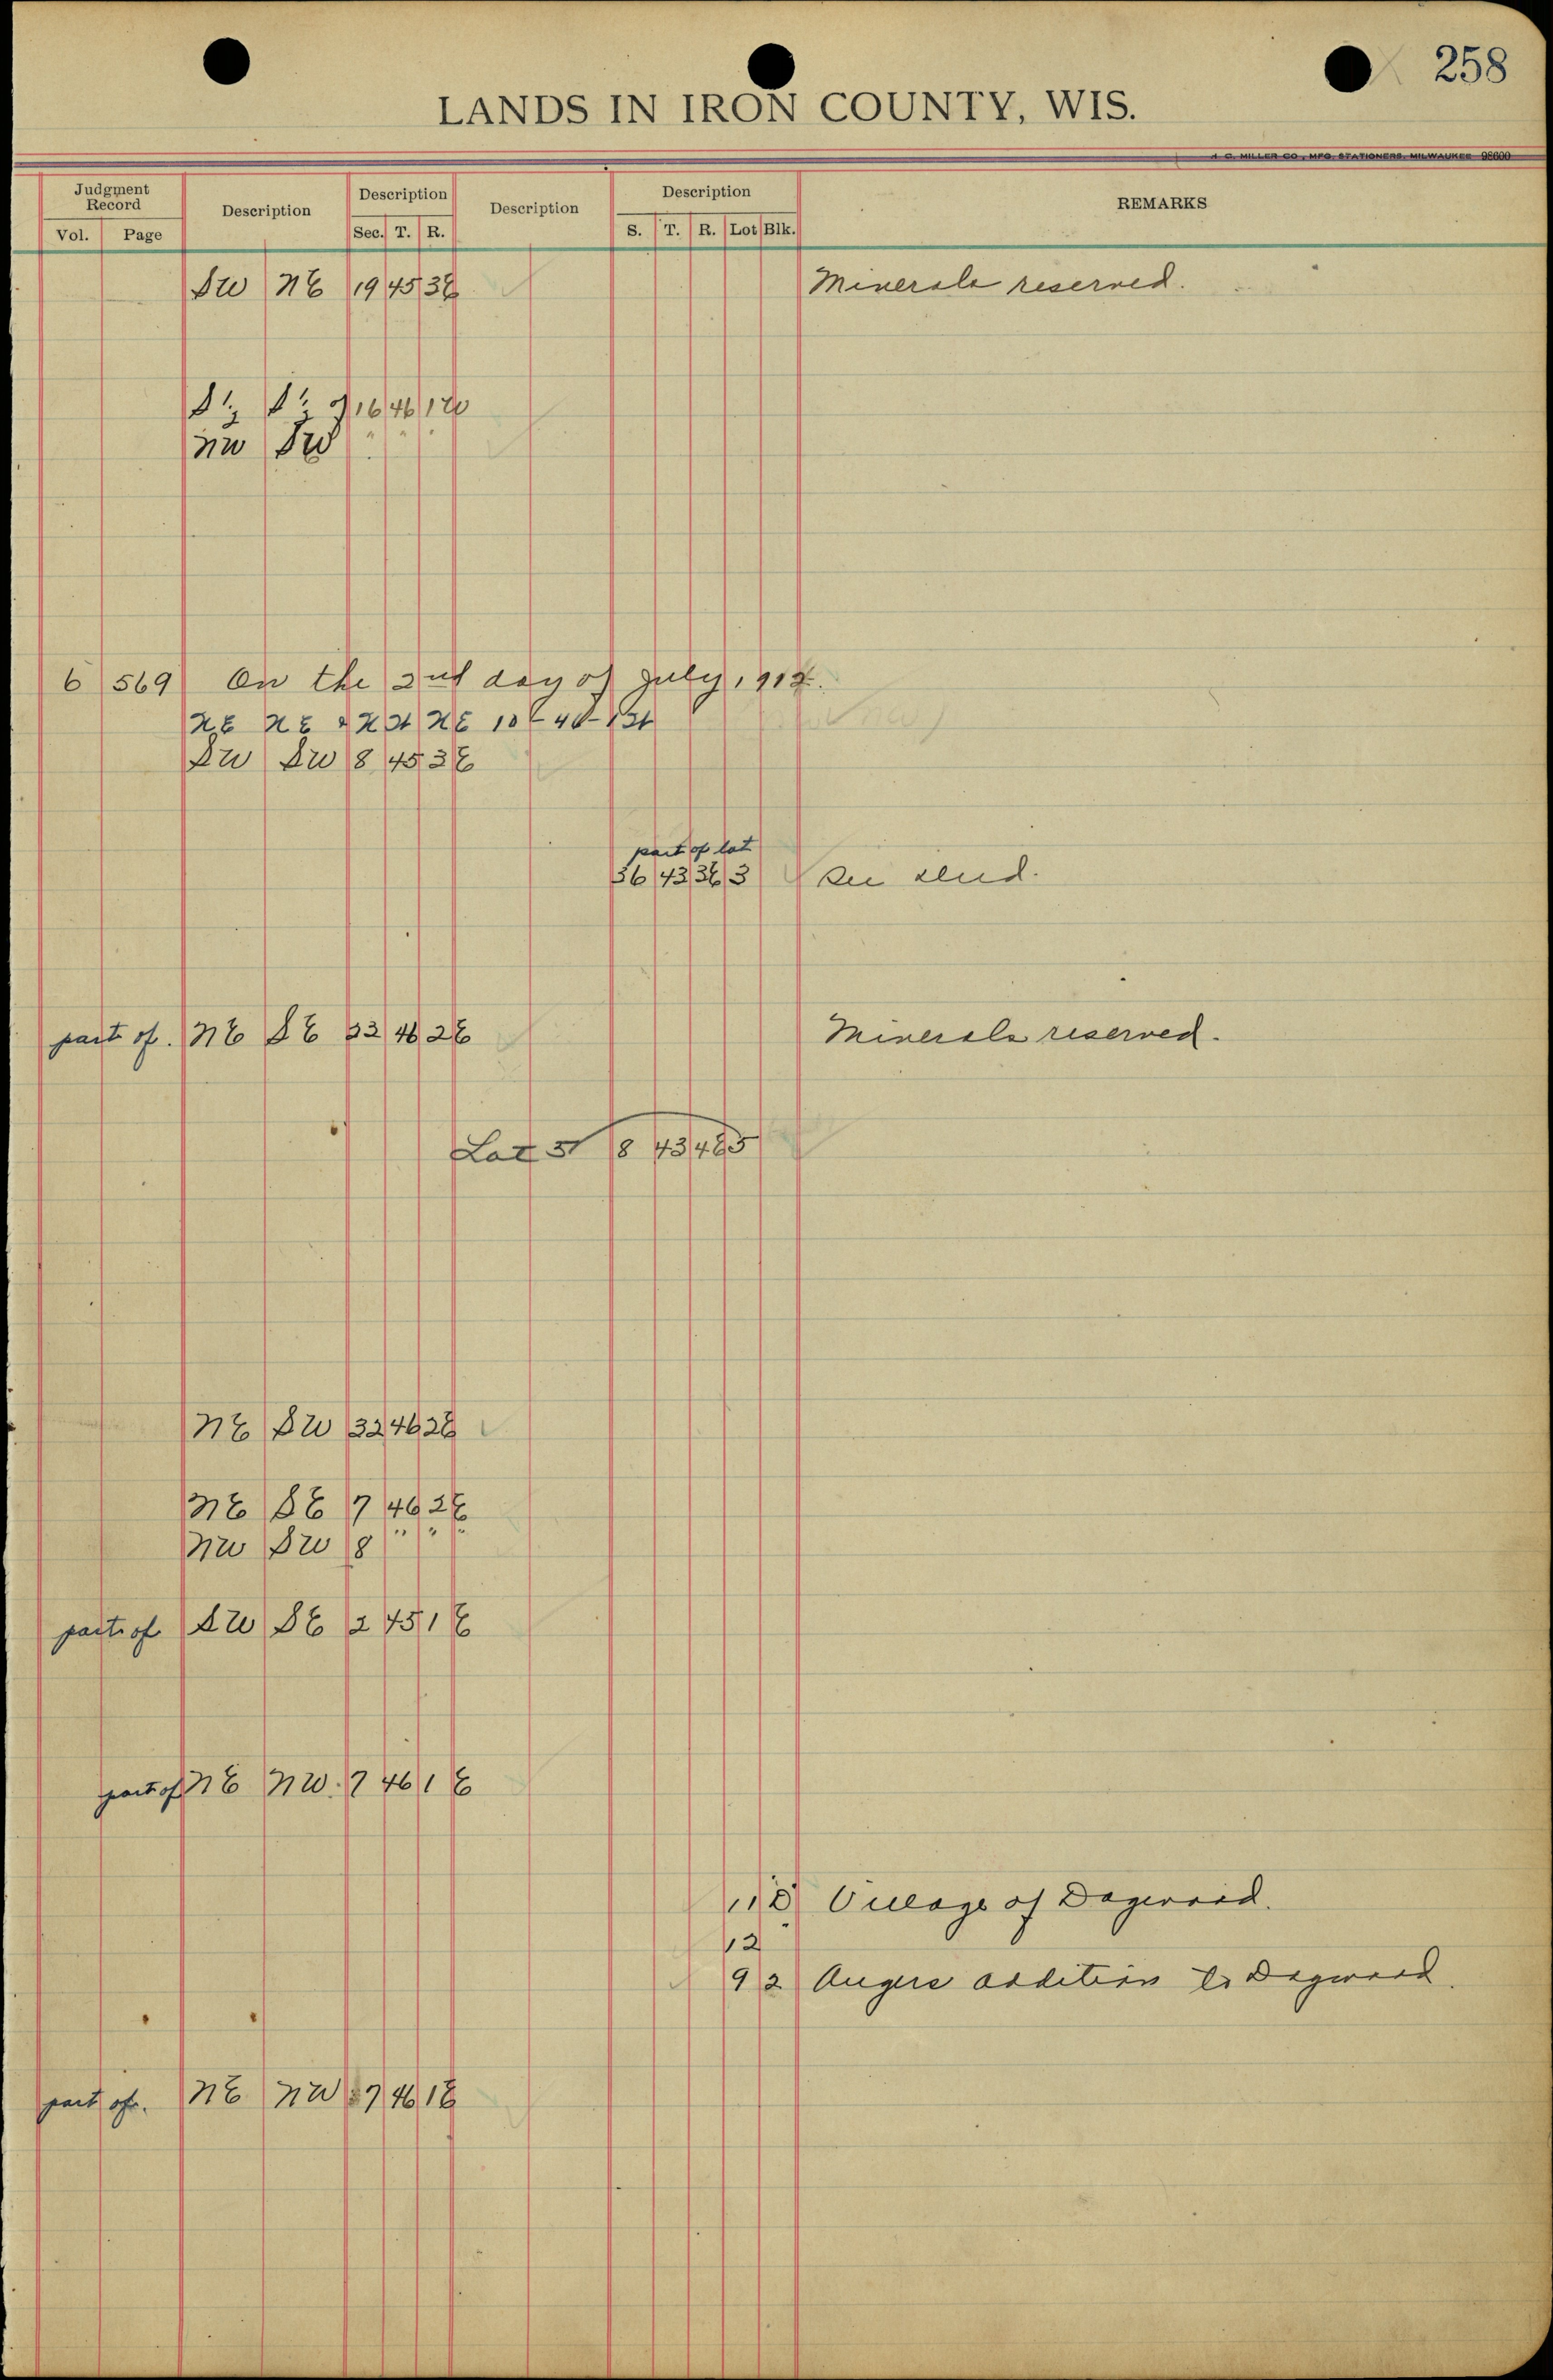 258
LANDS IN IRON COUNTY, WIS.
H. C. MILLER CO., MFG. STATIONERS, MILWAUKEE 98600
Judgment Record Description Description Description Description REMARKS
Vol. Page Sec. T. R. S. T. R. Lot Blk.
SW NE 19 45 3E Minerals reserved.
S½ S½ 16 46 1
NW SW " " "
6 569 On the 2nd day of July, 191
NE NE & NE 10 - 4
SW SW 8 45 3E
part of lot
36 43 3E 3 See deed.
part of. NE SE 32 46 2E Minerals reserved.
Lot 5 8 43 4E 5
NE SW 32 46 2E
NE SE 7 46 2E
NW SW 8 " " "
part of SW SE 2 45 1 E
part of NE NW. 7 46 1 E
11 Village of Dogwood.
12
9 2 Angus addition to Dogwood.
part of. NE NW 7 46 1E